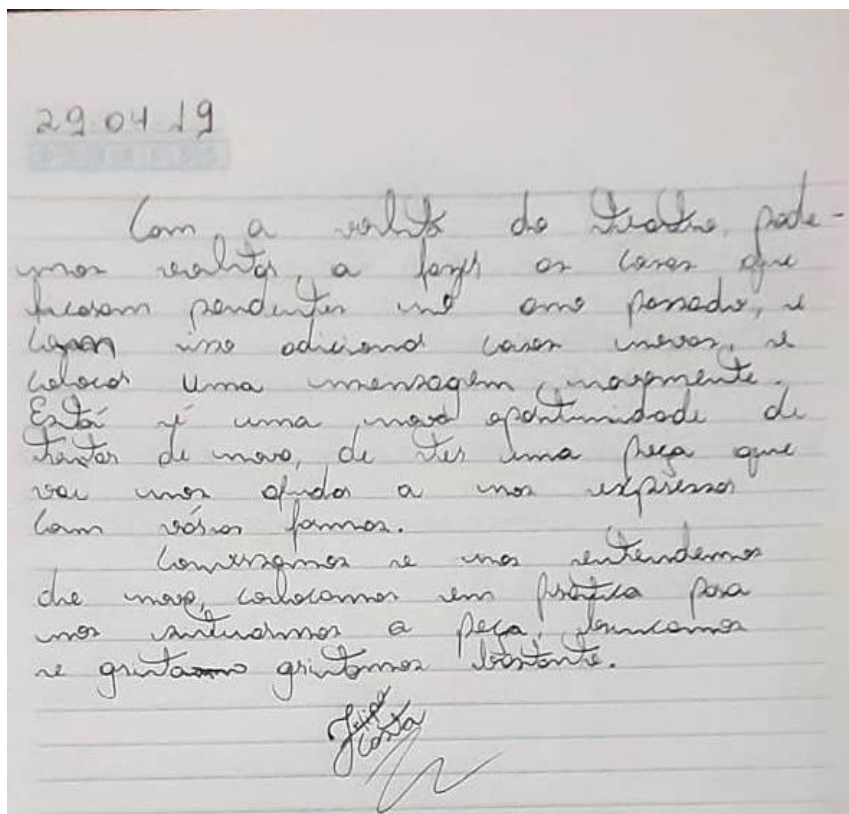 29 04 19
Com a volta do teatro, pode-
mos voltar, a fazer as coisas que
ficaram pendentes no ano passado, e
com isso adicionar coisas novas, e
colocar uma mensagem, novamente.
Está é uma nova oportunidade de
tentar de novo, de ter uma peça que
vai nos ajudar a nos expressar
com várias formas.
Conversamos e nos entendemos
de novo, colocamos em prática para
nos a peça, brincamos
e gritamo gritamos bastante.
Felipe
Costa